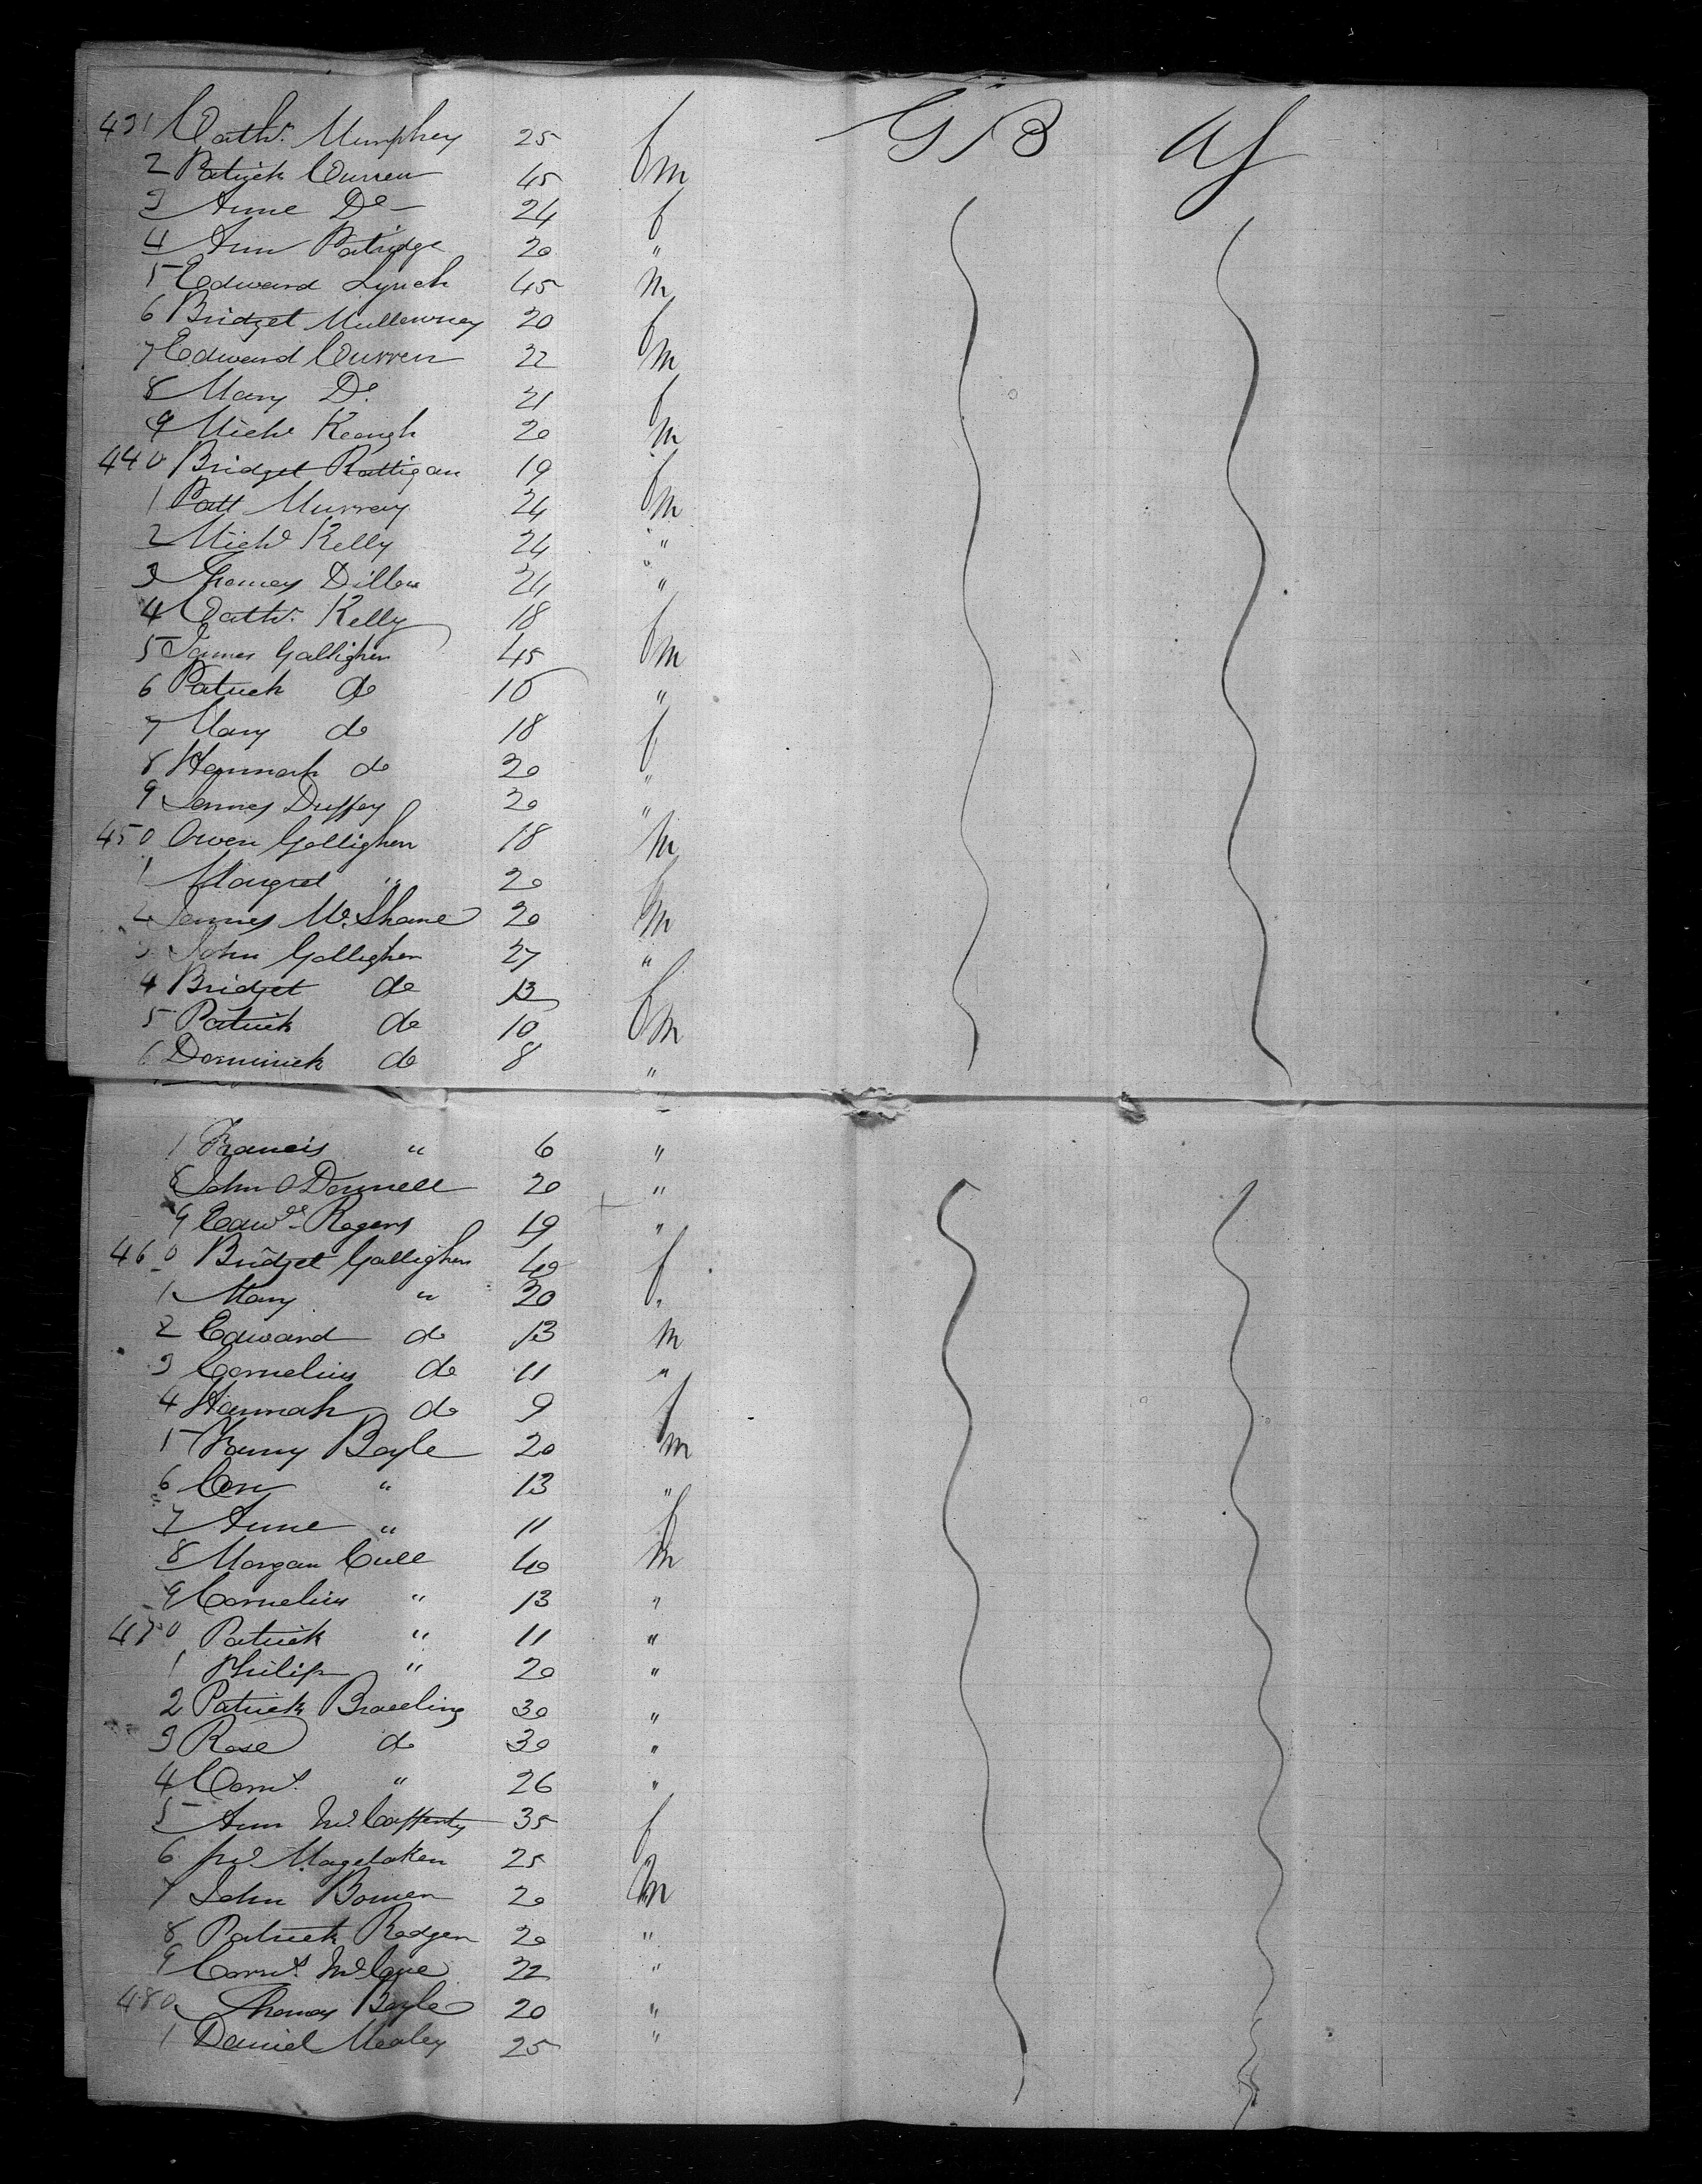 431 Cathr. Mumphey 25 f G/B Uf
2 Patrick Curren 45 m
3 Anne Do 24 f
4 Ann Patridge 20 "
5 Edward Lynch 45 m
6 Bridget Mullowney 20 f
7 Edward Curren 22 m
8 Mary Do. 21 f
9 Michl Keough 20 m
440 Bridget Rattigan 19 f
1 Patt Murray 24 m
2 Michl Kelly 24 "
3 Thomas Dillon 24 "
4 Cathr. Kelly 18 f
5 James Gallighen 45 m
6 Patrick do 10 "
7 Mary do 18 f
8 Hannah do 20 "
9 James Duffey 20 "
450 Owen Gallighen 18 m
1 Margret " 20 f
2 James Mc.Shane 20 m
3 John Gallighen 27 "
4 Bridget do 13 f
5 Patrick do 10 m
6 Dominick do 8 "
Francis " 6 "
8 John O Donnell 20 "
9 Edwd. Rogers 19 "
460 Bridget Gallighen 40 f
1 Mary " 20 "
2 Edward do 13 m
3 Cornelius do 11 "
4 Hannah do 9 f
5 Boyle 20 m
6 Con " 13 "
7 Anne " 11 f
8 Morgan Cull 40 m
9 Cornelius " 13 "
470 Patrick " 11 "
1 Philip " 20 "
2 Patrick 30 "
3 Rose do 30 "
4 " 26 "
5 Ann Mc.Cafferty 35 f
6 25
7 John 20 m
8 Patrick Rodgen 20 "
9 22 "
480 Thomas Boyle 20 "
1 Daniel Mealey 25 "